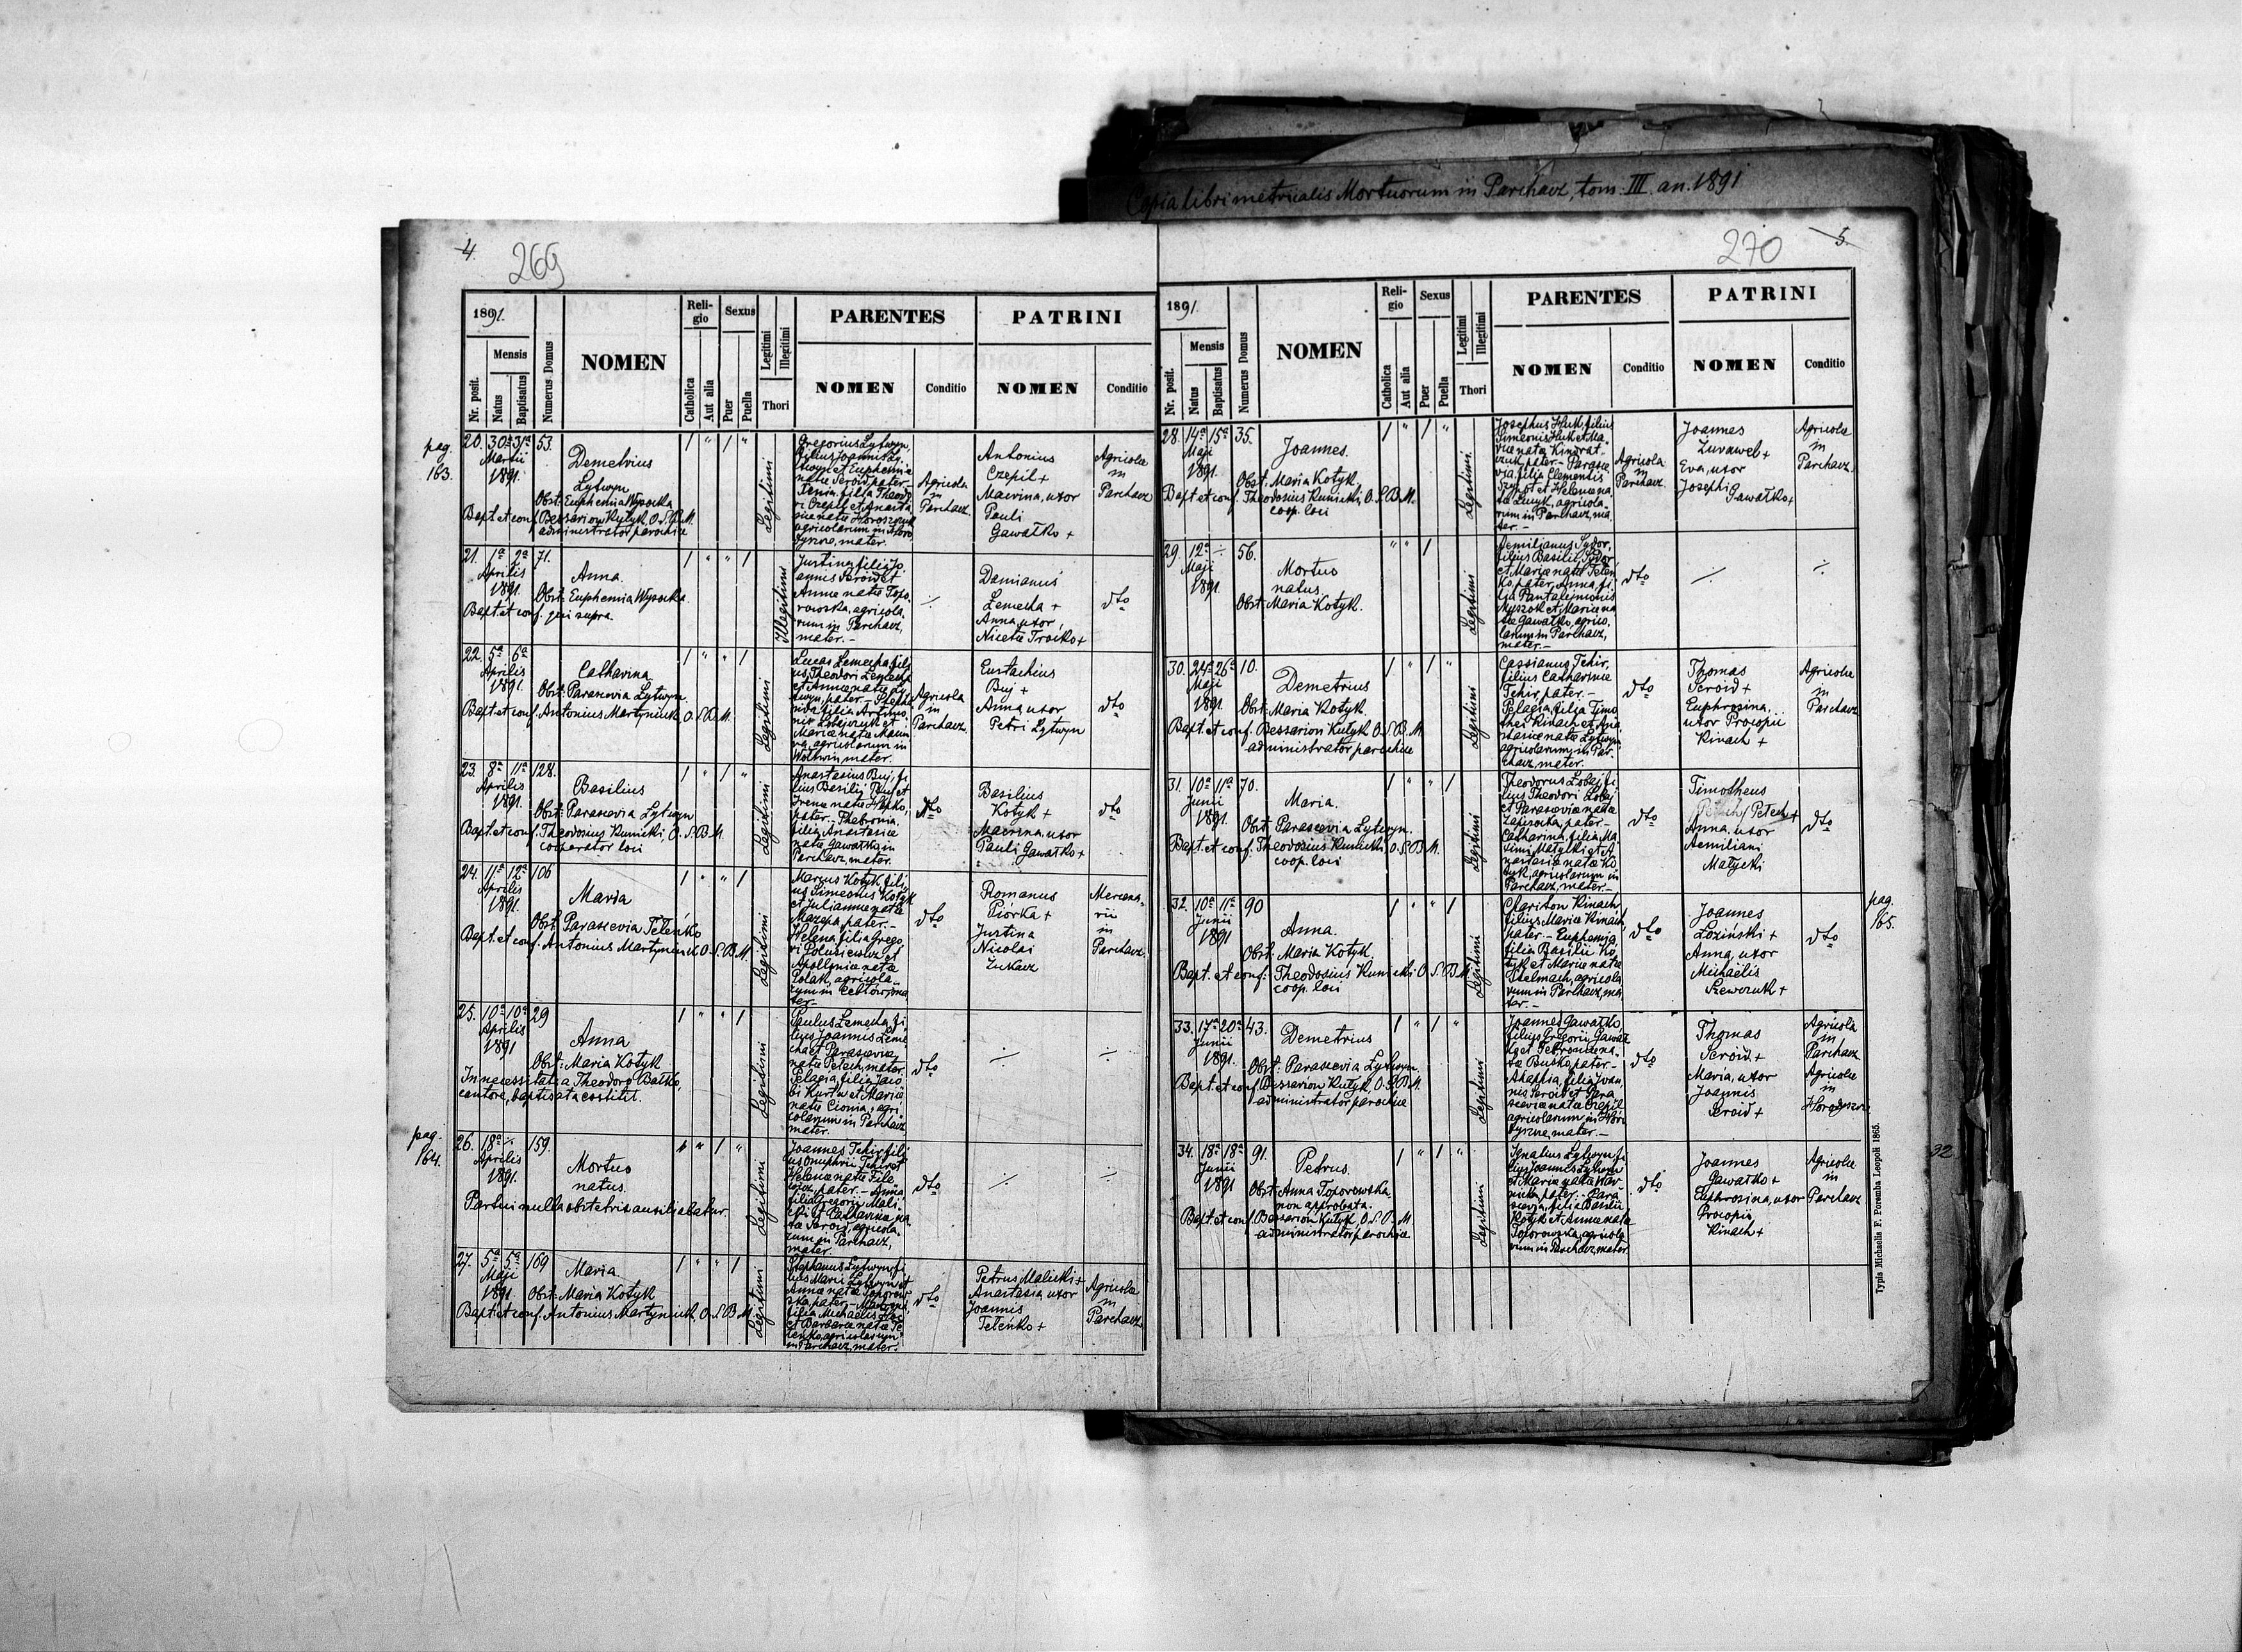 Copia libri metricalis Mortuorum in Parchacz, tom. III. an. 1891
4.
269
1891.
Nr. posit.
Mensis
Natus
Baptisatus
Numerus Domus
NOMEN
Religio
Catholica
Aut alia
Sexus
Puer
Puella
Legitimi
Illegitimi
Thori
PARENTES
NOMEN
Conditio
PATRINI
NOMEN
Conditio
pag.
163.
20. 30a 31a 53.
Martii
1891.
Demetrius
Lytwyn
Obst. Euphemia Wysocka
Bapt. et conf. Bessarion Kułyk, O.S.B.M.
administrator parochiae
Legitimi
Gregorius Lytwyn,
filius Joannis Ly-
twyn et Euphemiae
natae Seroid, pater.-
Xenia, filia Theodo-
ri Czepil et Anasta-
siae natae Horoszczuk
agricolarum in Horo-
dyszcze, mater.
Agricola
in
Parchacz.
Antonius
Czepil +
Macrina, uxor
Pauli
Gawałko +
Agricolae
in
Parchacz
21. 1a 2a 71.
Aprilis
1891.
Anna.
Obst. Euphemia Wysocka.
Bapt. et conf. qui supra.
Illegitimi
Justina, filia Jo-
annis Seroid et
Annae natae Topo-
rowska, agricola-
rum in Parchacz,
mater.-
Damianus
Lemecha +
Anna, uxor,
Nicetae Troćko +
dto
22. 5a 6a
Aprilis
1891.
Catharina
Obst. Parascevia Lytwyn
Bapt. et conf. Antonius Martyniuk, O.S.B.M.
Legitimi
Lucas Lemecha, fili-
us Theodori Lemecha
et Annae natae Ly-
twyn, pater.- Stepha-
nida, filia Artemo-
nis Łobejczuk et
Mariae natae
agricolarum in
Wołswin, mater.
Agricola
in
Parchacz.
Eustachius
Buj +
Anna uxor
Petri Lytwyn
dto
23. 8a 11a 128.
Aprilis
1891.
Basilius
Obst. Parascevia Lytwyn
Bapt. et conf. Theodosius Kunicki, O.S.B.M.
cooperator loci
Legitimi
Anastasius Buj, fi-
lius Basilii Buj et
Irenae natae Hapko,
pater.- Thebronia,
filia Anastasiae
natae Gawałko in
Parchacz, mater.
dto
Basilius
Kotyk +
Macrina, uxor
Pauli Gawałko +
dto
24. 11a 12a 106
Aprilis
1891.
Maria
Obst. Parascevia Teteńko
Bapt. et conf. Antonius Martyniuk O.S.B.M.
Legitimi
Marcus Kotyk, fili-
us Simeonis Kotyk
et Juliannae natae
Mazepa, pater.-
Helena, filia Grego-
rii Polusiewicz et
Apolloniae natae
Polak, agricola-
rum in Bełtów, ma-
ter.-
dto
Romanus
Piórka +
Justina
Nicolai
Łukacz
Mercena-
rii
in
Parchacz.
25. 10a 10a 29
Aprilis
1891
Anna
Obst. Maria Kotyk
In necessitate a Theodoro Bałko,
cantore, baptisata exstitit.
Legitimi
Paulus Lemecha, fi-
lius Joannis Leme-
cha et Parasceviae
natae Petech, mater.
Pelagia, filia Jaco-
bi Kurt et Mariae
natae Cioma, agri-
colarum in Parchacz
mater.
dto
pag.
164.
26. 18a 159.
Aprilis
1891.
Mortuo
natus.
Partui nulla obstetrix auxiliabatur.
Legitimi
Joannes Tchir, fili-
us Onuphrii Tchir et
Helenae natae File-
wicz, pater.- Anna,
filia Gregorii Mali-
cki et Catharinae, na-
tae Seroid, agricola-
rum in Parchacz,
mater.
dto
27. 5a 5a 169
Maji
1891
Maria
Obst. Maria Kotyk
Bapt. et conf. Antonius Martyniuk, O.S.B.M.
Legitimi
Stephanus Lytwyn, fi-
lius Marii Lytwyn et
Annae natae Toporow-
ska, pater.-
filia Michaelis
et Barbarae natae Te-
teńko, agricolarum
in Parchacz, mater.
dto
Petrus Malicki +
Anastasia uxor
Joannis
Teteńko +
Agricolae
in
Parchacz.
270
5.
1891.
Nr. posit.
Mensis
Natus
Baptisatus
Numerus Domus
NOMEN
Religio
Catholica
Aut alia
Sexus
Puer
Puella
Legitimi
Illegitimi
Thori
PARENTES
NOMEN
Conditio
PATRINI
NOMEN
Conditio
28. 14a 15a 35.
Maji
1891.
Joannes.
Obst. Maria Kotyk
Bapt. et conf. Theodosius Kunicki, O.S.B.M.
coop. loci
Legitimi.
Josephus Huk, filius
Simeonis Huk et Ma-
riae natae Kindrat-
czuk, pater.- Parasce-
via, filia Clementis
et Helenae na-
tae Łucyk, agricola-
rum in Parchacz, ma-
ter.-
Agricola
in
Parchacz
Joannes
Żurawel +
Eva, uxor
Josephi
Gawałko +
Agricolae
in
Parchacz.
29. 12a 56.
Maji
1891.
Mortuo
natus
Obst. Maria Kotyk.
Legitimi
Aemilianus Sydor,
filius Basilii Sydor
et Mariae natae Teteń-
ko, pater, Anna, fi-
lia Pantalejmonis
Myszok et Mariae na-
tae Gawałko, agrico-
larum in Parchacz,
mater.-
dto
30. 24a 26a 10.
Maji
1891.
Demetrius
Obst. Maria Kotyk.
Bapt. et conf. Bessarion Kułyk O.S.B.M.
administrator parochiae
Legitimi
Cassianus Tchir,
filius Catharinae
Tchir, pater.-
Pelagia, filia Timo-
thei Kinach et Ana-
stasiae natae Lytwyn
agricolarum in Par-
chacz, mater.
dto
Thomas
Seroid +
Euphrosina,
uxor Procopii
Kinach +
Agricolae
in
Parchacz
31. 10a 11a 70.
Junii
1891.
Maria.
Obst. Parascevia Lytwyn.
Bapt. et conf. Theodosius Kunicki O.S.B.M.
coop. loci
Legitimi
Theodorus Łobaj, fi-
lius Theodori Łobaj
et Parasceviae natae
Zapisocka, pater.-
Catharina, filia Ma-
ximi Matycki et A-
nastasiae natae Ko-
tyk, agricolarum in
Parchacz, mater.-
dto
Timotheus
Petech +
Anna, uxor
Aemiliani
Matycki
dto
pag.
165.
32. 10a 11a 90
Junii
1891
Anna.
Obst. Maria Kotyk
Bapt. et conf. Theodosius Kunicki O.S.B.M.
coop. loci
Legitimi
Chariton Kinach
filius Mariae Kinach,
pater.- Euphemia,
filia Basilii Ko-
tyk et Mariae natae
Stelmach, agricola-
rum in Parchacz, ma-
ter.-
dto
Joannes
Łoziński +
Anna, uxor
Michaëlis
Szewczuk +
dto
33. 17a 20a 43.
Junii
1891.
Demetrius
Obst. Parascevia Lytwyn.
Bapt. et conf. Bessarion Kułyk O.S.B.M.
administrator parochiae
Legitimi
Joannes Gawałko,
filius Gregorii Gawał-
ko et Petronelae na-
tae Buśko, pater.-
Ahaphia, filia Joan-
nis Seroid et Para-
sceviae natae Czepil
agricolarum in Horo-
dyszcze, mater.-
dto
Thomas
Seroid +
Maria, uxor
Joannis
Seroid +
Agricola
in
Parchacz
Agricolae
in
Horodyszcze
34. 18a 18a 91.
Junii
1891
Petrus.
Obst. Anna Toporowska,
non approbata.
Bapt. et conf. Bessarion Kułyk, O.S.B.M.
administrator parochiae
Legitimi
Ignatius Lytwyn, fi-
lius Joannis Lytwyn
et Mariae natae
pater.- Para-
scevia, filia Basilii
Kotyk et Annae natae
Toporowska, agricola-
rum in Parchacz, mater
dto
Joannes
Gawałko +
Euphrosina, uxor
Procopii
Kinach +
Agricolae
in
Parchacz
Typis Michaelis F. Poremba Leopoli 1865.
32